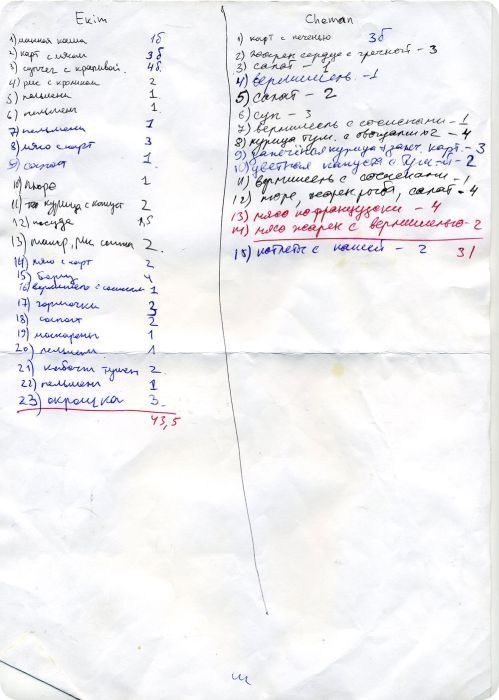 Ekim
1) манная каша 1б
2) карт с мясом 3б
3) супчег с крапивой. 4б
4) рис с кроликом 2
5) пельмени 1
6) пельмени 1.
7) пельмени 1
8) мясо с карт 3
9) салат 1
10) пюре 1
11) курица с капуст 2
12) посуда 1,5
13) рис 2
14) мясо с карт 2
15) борщ 4
16) вермишель с сосиской 1
17) горшочки 3
18) 2
19) макароны 1
20) пельмени 1
21) кабачки тушен 2
22) пельмени 1
23) окрошка 3.
43,5
Cheman
1) карт с печенью 3б
2) жарен сердце с гречкой - 3
3) салат - 1
4) вермишель. - 1
5) салат - 2
6) суп - 3
7) вермишель с сосисками - 1
8) курица туш. с овощами - 4
9) запечёная курица + запеч. карт. - 3
10) цветная капуста с - 2
11) вермишель с сосисками - 1
12) пюре, жарен рыба, салат - 4
13) мясо по французски - 4
14) мясо жарен с вермишелью - 2
15) котлеты с кашей - 2 31